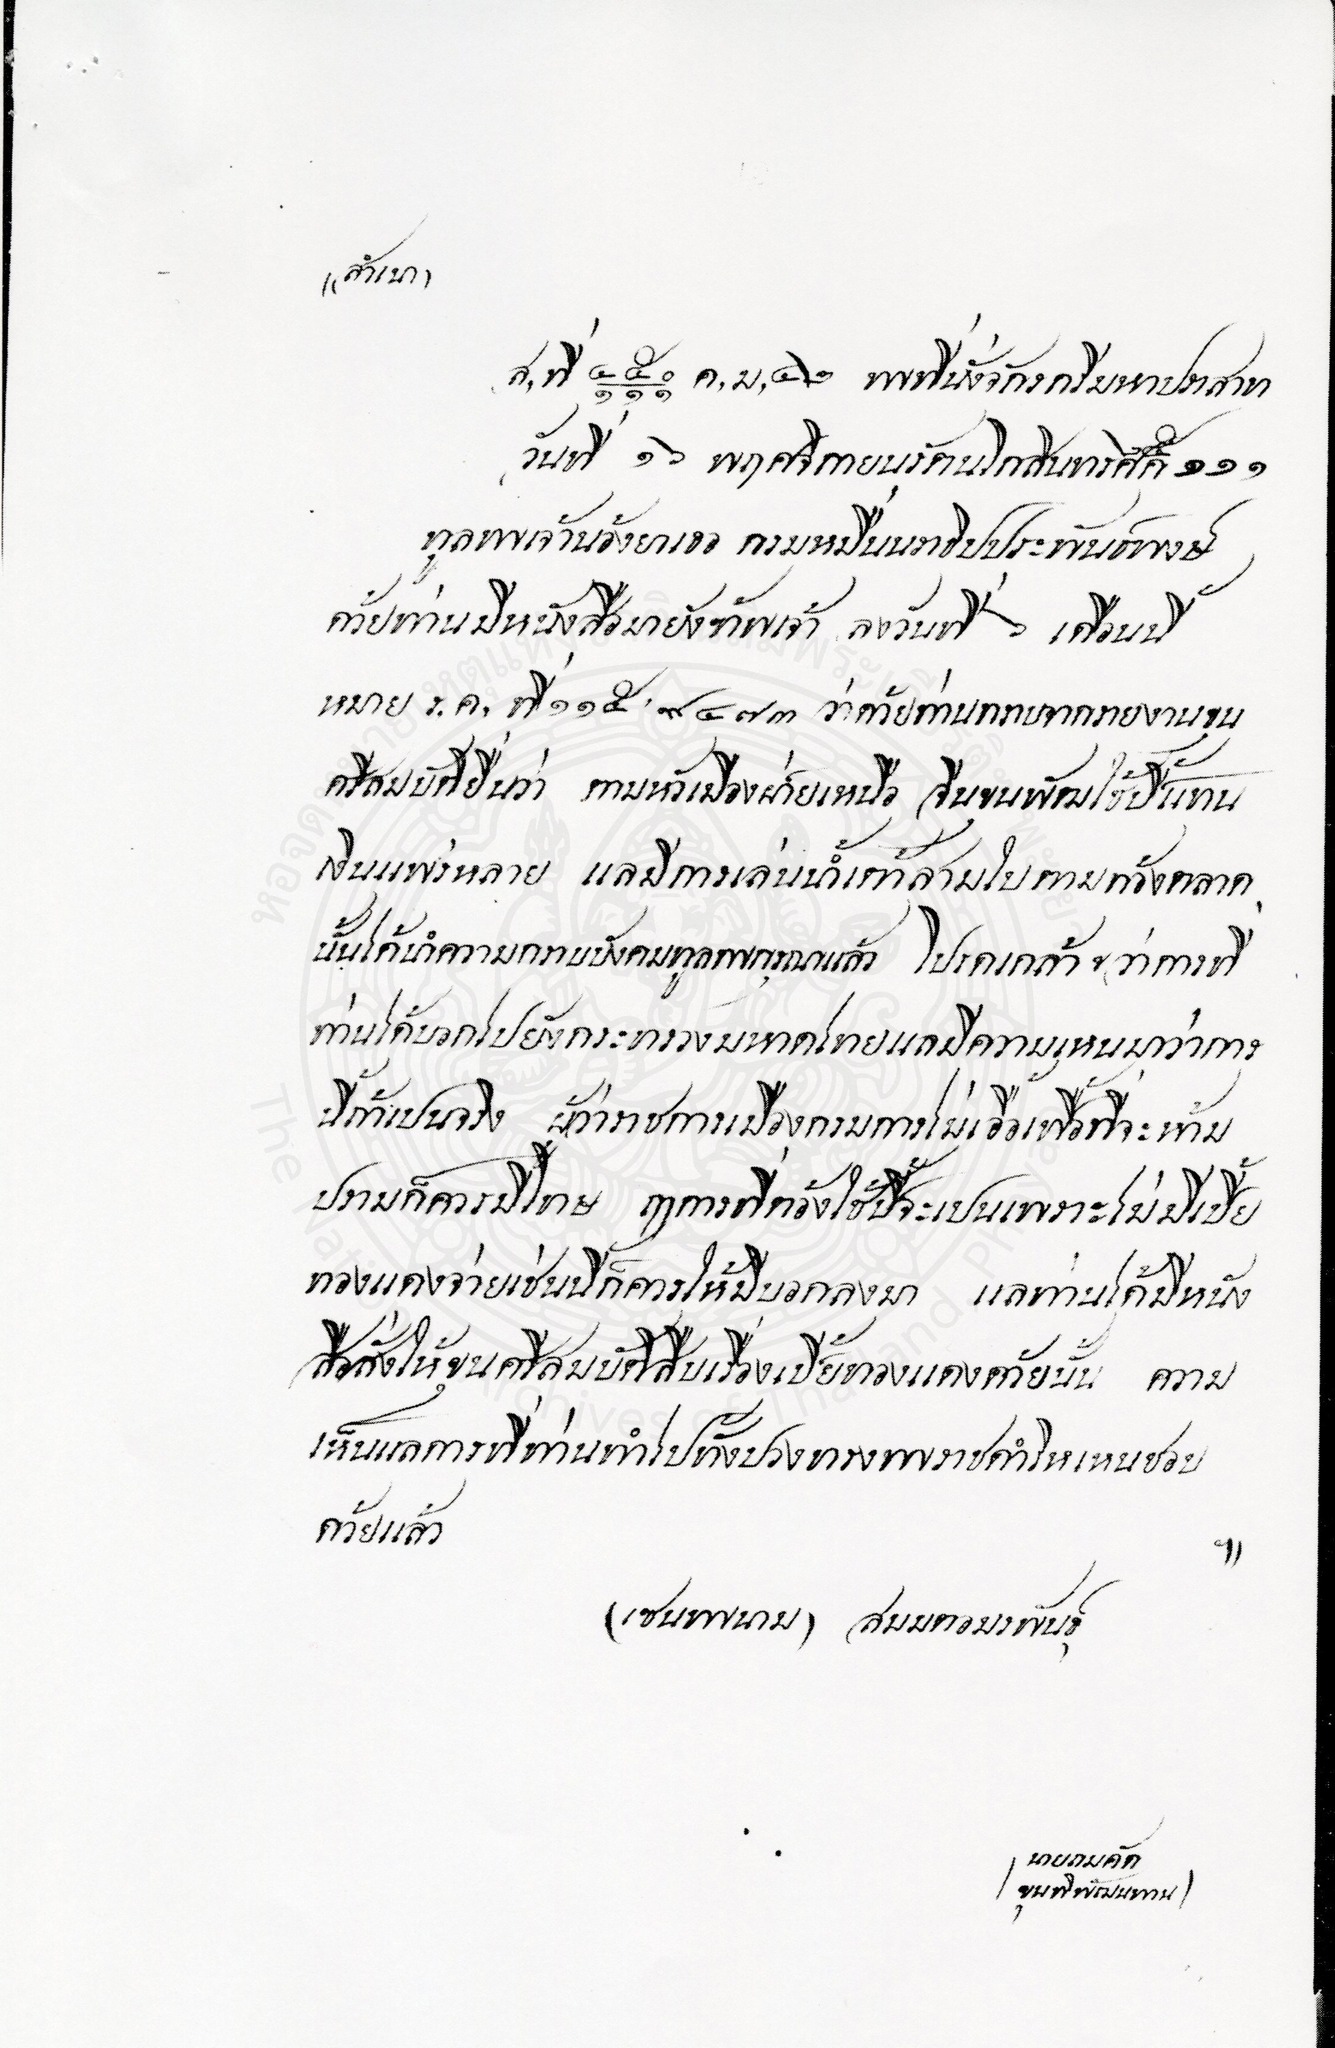 (สำเนา)
ส, ที่ ๔๕๐/๑๑๑ ค, ม, พระที่นั่งจักรกรีมหาปราสาท
วันที่ ๑๖ พฤศจิกายนรัตนโกสินทรศก๊ ๑๑๑
ทูลพระเจ้าน้องยาเธอ กรมหมื่นนราธิปประพันธ์พงษ์
ด้วยท่านมีหนังสือมายังข้าพเจ้า ลงวันที่ ๖ เดือนนี้
หมาย ร, ค, ที่ ๑๑๕/๙๔๗๓ ว่าด้วยท่านทราบจากรายงานขุน
ศรีสมบัติยื่นว่า ตามหัวเมืองฝ่ายเหนือ จีนขุนพัฒใช้ปี้แทน
เงินแพร่หลาย แลมีการเล่นน้ำเต้าสามใบตามท้องตลาด
นั้นได้นำความกราบบังคมทูลพระกรุณาแล้ว โปรดเกล้าฯ ว่าการที่
ท่านได้บอกไปยังกระทรวงมหาดไทยแลมีความเหนมาว่าการ
นี้ถ้าเปนจริง ผู้ว่าราชการเมืองกรมการไม่เอื้อเฟื้อที่จะห้าม
ปรามก็ควรมีโทษ ฤๅการที่ต้องใช้ปี้จะเปนเพราะไม่มีเบี้ย
ทองแดงจ่ายเช่นนี้ก็ควรให้มีบอกลงมา แลท่านได้มีหนัง
สือสั่งให้ขุนศรีสมบัติสืบเรื่องเบี้ยทองแดงด้วยนั้น ความ
เห็นแลการที่ท่านทำไปทั้งปวงทรงพระราชดำริหเหนชอบ
ด้วยแล้ว ฯ
(เซนพระนาม) สมมตอมรพันธุ์
นายถมคัด
ขุนพิพัฒนทาน
หอจดหมายเหตุแห่งชาติ
The National Archives of Thailand